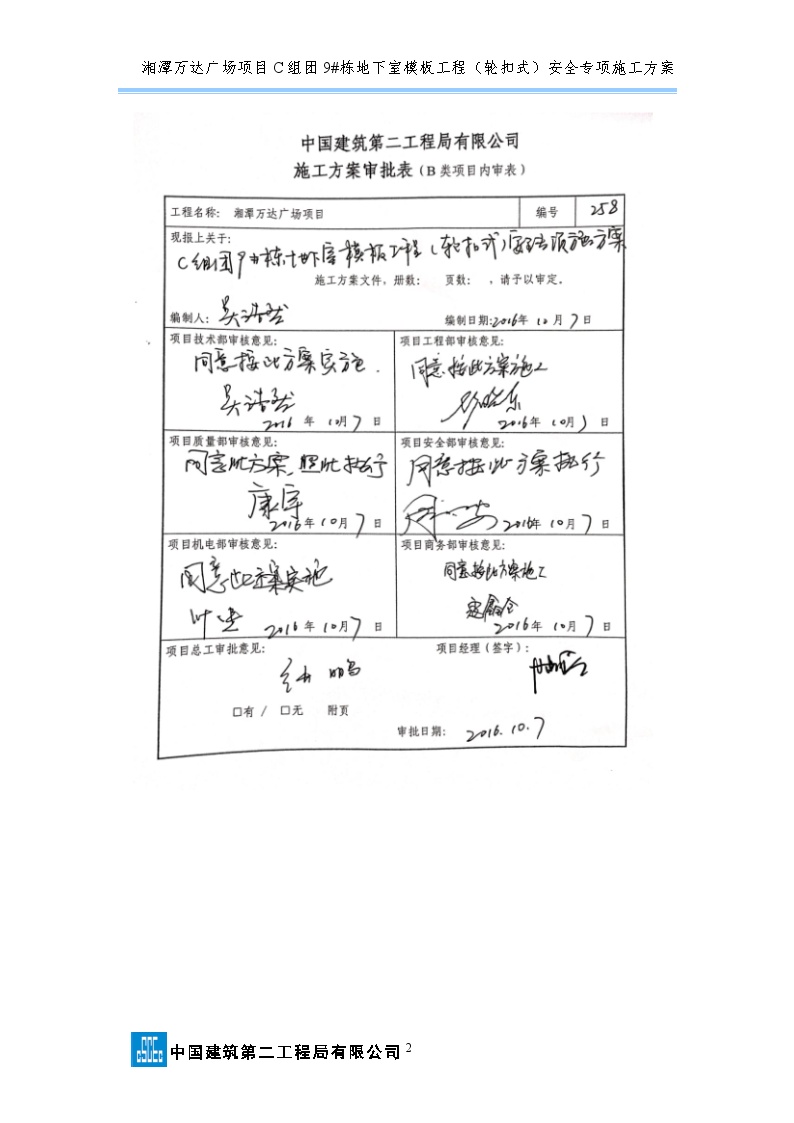 湘潭万达广场项目C组团9#栋地下室模板工程（轮扣式）安全专项施工方案
中国建筑第二工程局有限公司
施工方案审批表（B类项目内审表）
工程名称： 湘潭万达广场项目 编号 258
现报上关于：
C组团9#栋地下室模板工程（轮扣式）安全专项施工方案
施工方案文件，册数： 页数： ，请予以审定。
编制人：吴浩然 编制日期:2016年10月7日
项目技术部审核意见： 项目工程部审核意见：
同意按此方案实施. 同意按此方案施工
吴浩然
2016年10月7日 2016年10月7日
项目质量部审核意见： 项目安全部审核意见：
同意此方案,照此执行 同意按此方案执行
康军
2016年10月7日 2016年10月7日
项目机电部审核意见： 项目商务部审核意见：
同意此方案实施 同意按此方案施工
2016年10月7日 2016年10月7日
项目总工审批意见： 项目经理（签字）：
□有 / □无 附页
审批日期： 2016.10.7
CSCEC 中国建筑第二工程局有限公司 2